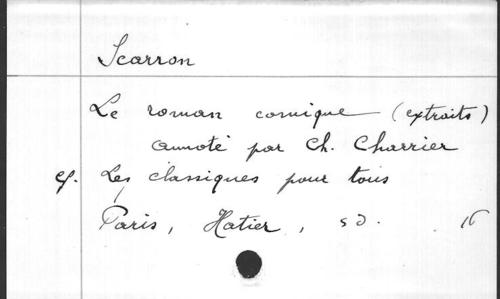 Scarron
Le roman comique (extraits)
annoté par Ch. Charrier
cf. Les classiques pour tous
Paris, Hatier, s d. 16